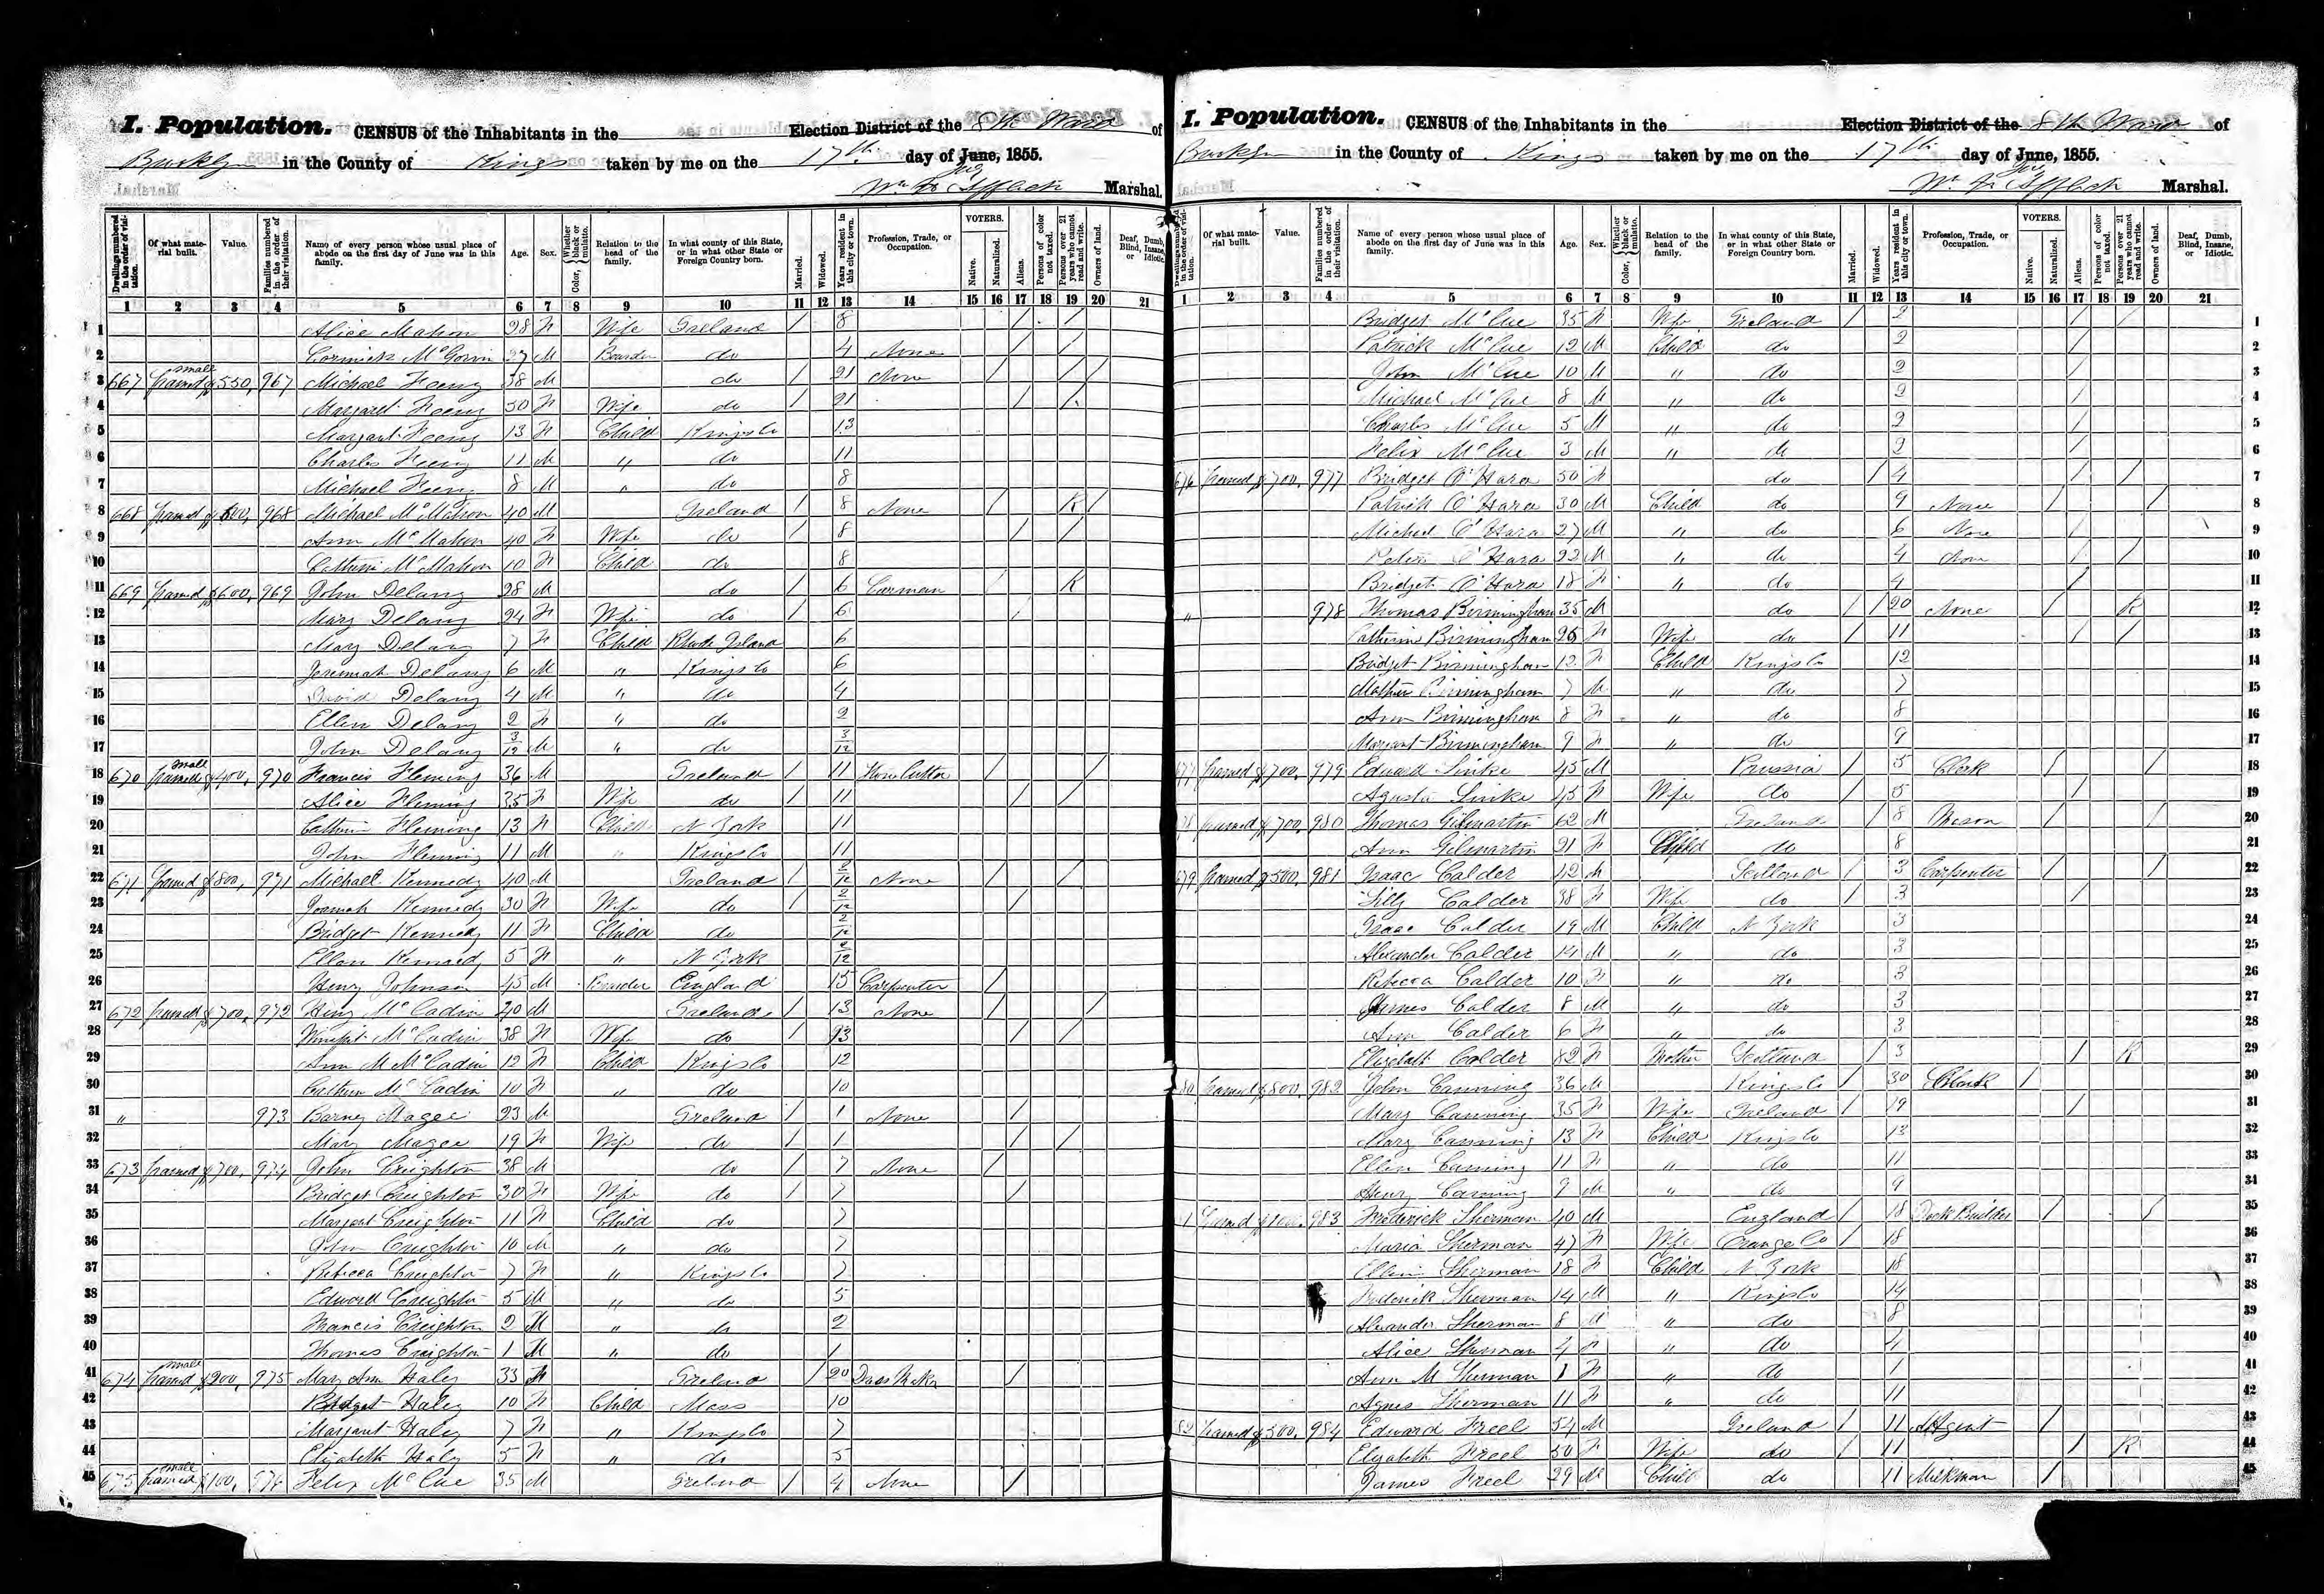 I. Population. CENSUS of the Inhabitants in the Election District of the 8th Ward of
Brooklyn in the County of Kings taken by me on the 17th day of June, 1855.
Marshal.
Dwellings numbered in the order of visitation. Of what material built. Value. Families numbered in the order of their visitation. Name of every person whose usual place of abode on the first day of June was in this family. Age. Sex. Color, Whether black or mulatto. Relation to the head of the family. In what county of this State, or in what other State or Foreign Country born. Married. Widowed. Years resident in this city or town. Profession, Trade, or Occupation. VOTERS. Native. Naturalized. Aliens. Persons of color not taxed. Persons over 21 years who cannot read and write. Owners of land. Deaf, Dumb, Blind, Insane, or Idiotic.
1 2 3 4 5 6 7 8 9 10 11 12 13 14 15 16 17 18 19 20 21
1 Alice Mahon 28 F Wife Ireland / 8 / /
2 Cormick McGovin 27 M Boarder do 4 None / /
3 667 small framed $550, 967 Michael Feeny 38 M do / 21 None / / /
4 Margaret Feeny 30 F Wife do / 21 / /
5 Margaret Feeny 13 F Child Kings Co 13
6 Charles Feeny 11 M " do 11
7 Michael Feeny 8 M " do 8
8 668 framed $600, 968 Michael McMahon 40 M Ireland / 8 None / R /
9 Ann McMahon 40 F Wife do / 8 / /
10 Catherin McMahon 10 F Child do 8
11 669 framed $600, 969 John Delany 28 M do / 6 Carman / R
12 Mary Delany 24 F Wife do / 6 /
13 Mary Delany 7 F Child Rhode Island 6
14 Jeremiah Delany 6 M " Kings Co 6
15 David Delany 4 M " do 4
16 Ellen Delany 2 F " do 2
17 John Delany 3/12 M " do 3/12
18 670 small framed $400, 970 Francis Fleming 36 M Ireland / 11 Stone Cutter / /
19 Alice Fleming 35 F Wife do / 11 / /
20 Catherin Fleming 13 F Child N York 11
21 John Fleming 11 M " Kings Co 11
22 671 framed $800, 971 Michael Kennedy 40 M Ireland / 2/12 None / /
23 Joannah Kennedy 30 F Wife do / 2/12 /
24 Bridget Kennedy 11 F Child do 2/12
25 Ellen Kennedy 5 F " N York 2/12
26 Henry Johnson 45 M Boarder England 15 Carpenter /
27 672 framed $700, 972 Henry McCadin 40 M Ireland / 13 None / /
28 McCadin 38 F Wife do / 13 / /
29 Ann M McCadin 12 F Child Kings Co 12
30 Cathern McCadin 10 F " do 10
31 " 973 Barney Magee 23 M Ireland / 1 None /
32 Mary Magee 19 F Wife do / 1 / /
33 673 framed $700, 974 John Creighton 38 M do / 7 None /
34 Bridget Creighton 30 F Wife do / 7 /
35 Margaret Creighton 11 F Child do 7
36 John Creighton 10 M " do 7
37 Rebecca Creighton 7 F " Kings Co 7
38 Edward Creighton 5 M " do 5
39 Francis Creighton 2 M " do 2
40 Thomas Creighton 1 M " do 1
41 674 small framed $200, 975 Mary Ann Haley 33 F Ireland / 20 Dress Maker /
42 Bridget Haley 10 F Child Mass 10
43 Margaret Haley 7 F " Kings Co 7
44 Elizabeth Haley 5 F " do 5
45 675 small framed $100, 976 Felix McCue 35 M Ireland / 4 None /
I. Population. CENSUS of the Inhabitants in the Election District of the 8th Ward of
Brooklyn in the County of Kings taken by me on the 17th day of June, 1855.
Marshal.
Dwellings numbered in the order of visitation. Of what material built. Value. Families numbered in the order of their visitation. Name of every person whose usual place of abode on the first day of June was in this family. Age. Sex. Color, Whether black or mulatto. Relation to the head of the family. In what county of this State, or in what other State or Foreign Country born. Married. Widowed. Years resident in this city or town. Profession, Trade, or Occupation. VOTERS. Native. Naturalized. Aliens. Persons of color not taxed. Persons over 21 years who cannot read and write. Owners of land. Deaf, Dumb, Blind, Insane, or Idiotic.
1 2 3 4 5 6 7 8 9 10 11 12 13 14 15 16 17 18 19 20 21
Bridget McCue 35 F Wife Ireland / 2 / / 1
Patrick McCue 12 M Child do 2 / 2
John McCue 10 M " do 2 / 3
Michael McCue 8 M " do 2 / 4
Charles McCue 5 M " do 2 / 5
Felix McCue 3 M " do 2 / 6
676 framed $700, 977 Bridget O'Hara 50 F do / 4 / / 7
Patrick O'Hara 30 M Child do 9 None / / 8
Michael O'Hara 27 M " do 6 None / 9
Peter O'Hara 22 M " do 4 None / / 10
Bridget O'Hara 18 F " do 4 / 11
" 978 Thomas Birmingham 35 M do / / 20 None / R 12
Catherine Birmingham 25 F Wife do / 11 / / 13
Bridget Birmingham 12 F Child Kings Co 12 14
Mathew Birmingham 7 M " do 7 15
Ann Birmingham 8 F " do 8 16
Margaret Birmingham 9 F " do 9 17
677 framed $700, 979 Edward Sinke 45 M Prussia / 5 Clerk / / 18
Agusta Sinke 45 F Wife do / 5 / 19
78 framed $700, 980 Thomas Gilmartin 62 M Ireland / 8 Mason / / 20
Ann Gilmartin 21 F Child do 8 21
679 framed $500, 981 Isaac Calder 42 M Scotland / 3 Carpenter / / 22
Calder 38 F Wife do / 3 / 23
Isaac Calder 19 M Child N York 3 24
Alexander Calder 14 M " do 3 25
Rebecca Calder 10 F " do 3 26
James Calder 8 M " do 3 27
Ann Calder 6 F " do 3 28
Elizabeth Calder 82 F Mother Scotland / 3 / R 29
80 framed $800, 982 John Canning 36 M Kings Co / 30 Clerk / 30
Mary Canning 35 F Wife Ireland / 19 / 31
Mary Canning 13 F Child Kings Co 13 32
Ellen Canning 11 F " do 11 33
Henry Canning 9 M " do 9 34
1 framed 983 Frederick Sherman 40 M England / 18 Dock Builder / / 35
Maria Sherman 47 F Wife Orange Co / 18 36
Ellen Sherman 18 F Child N York 18 37
Frederick Sherman 14 M " Kings Co 14 38
Alexander Sherman 8 M " do 8 39
Alice Sherman 4 F " do 4 40
Ann M Sherman 1 F " do 1 41
Agnes Sherman 11 F " do 11 42
82 framed $500, 984 Edward Freel 54 M Ireland / 11 Agent / 43
Elizabeth Freel 50 F Wife do / 11 / R 44
James Freel 29 M Child do 11 Milkman / 45